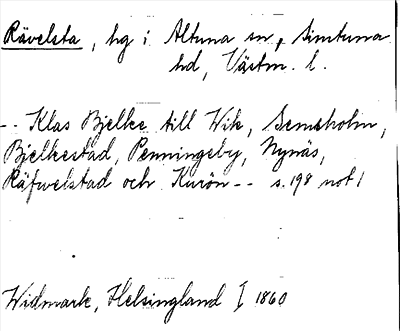 Rävelsta, hg i Altuna sn, Simtuna
hd, Västm. l.
-- Klas Bjelke till Wik, Semsholm,
Bjelkestad, Penningeby, Nynäs,
Räfvelstad och Kurön -- s. 198 not 1
Widmark, Helsingland I 1860